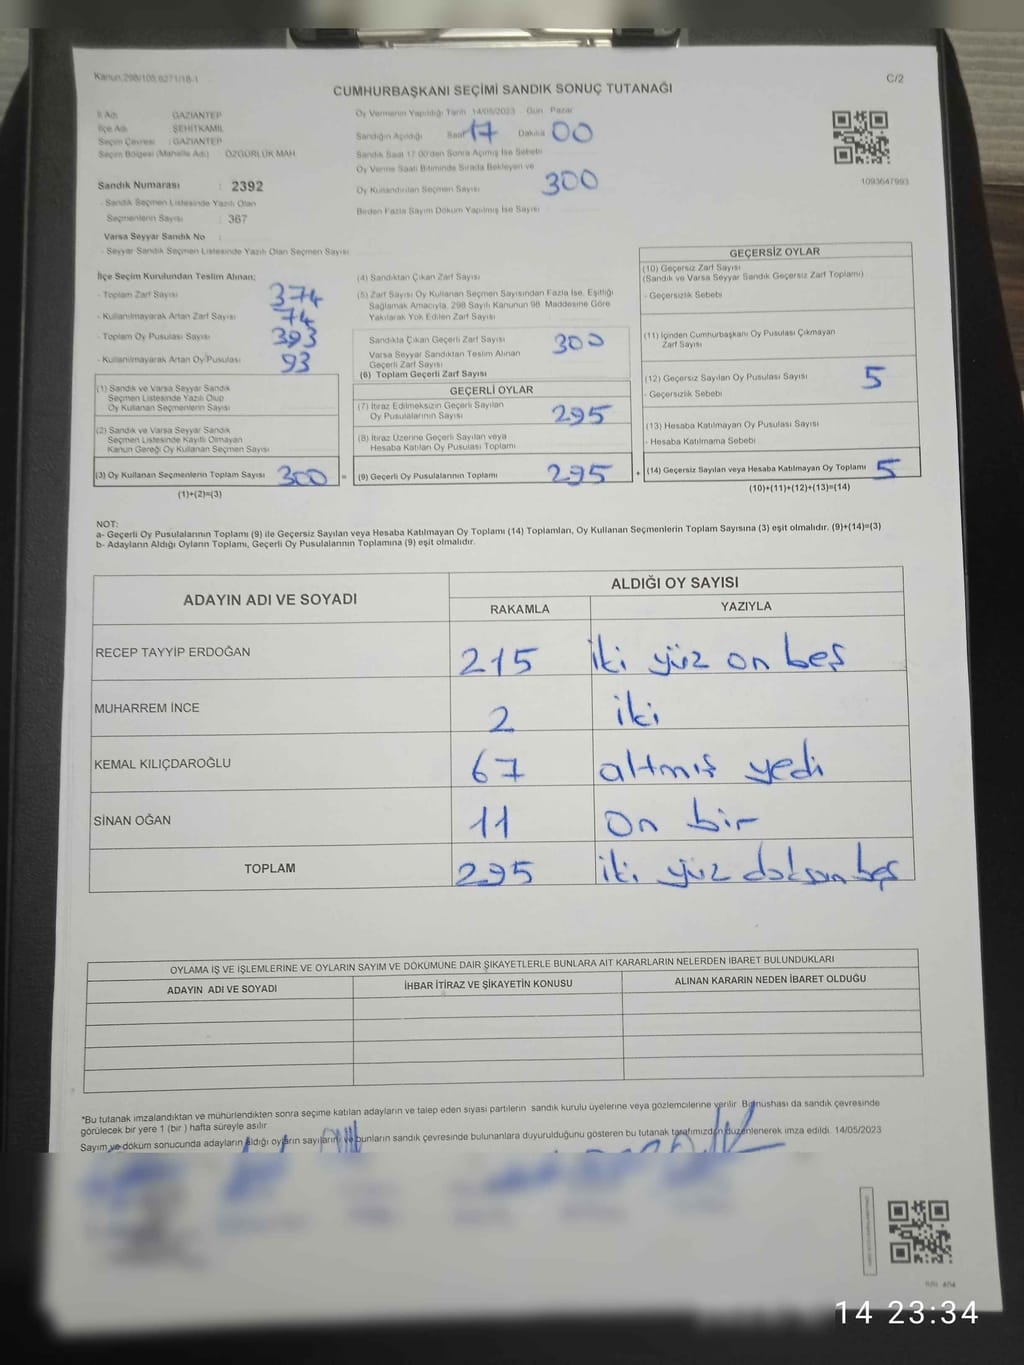 Kanun:298/105;6271/18-1
C/2
CUMHURBAŞKANI SEÇİMİ SANDIK SONUÇ TUTANAĞI
İl Adı GAZİANTEP
İlçe Adı ŞEHİTKAMİL
Seçim Çevresi : GAZİANTEP
Seçim Bölgesi (Mahalle Adı) : ÖZGÜRLÜK MAH.
Sandık Numarası : 2392
- Sandık Seçmen Listesinde Yazılı Olan
Seçmenlerin Sayısı : 367
Varsa Seyyar Sandık No :
- Seyyar Sandık Seçmen Listesinde Yazılı Olan Seçmen Sayısı
Oy Vermenin Yapıldığı Tarih 14/05/2023 Gün Pazar
Sandığın Açıldığı Saat 17 Dakika 00
Sandık Saat 17:00'den Sonra Açılmış İse Sebebi
Oy Verme Saati Bitiminde Sırada Bekleyen ve
Oy Kullandırılan Seçmen Sayısı 300
Birden Fazla Sayım Döküm Yapılmış İse Sayısı
1093647993
İlçe Seçim Kurulundan Teslim Alınan;
- Toplam Zarf Sayısı 374
- Kullanılmayarak Artan Zarf Sayısı 74
- Toplam Oy Pusulası Sayısı 393
- Kullanılmayarak Artan Oy Pusulası 93
(1) Sandık ve Varsa Seyyar Sandık
Seçmen Listesinde Yazılı Olup
Oy Kullanan Seçmenlerin Sayısı
(2) Sandık ve Varsa Seyyar Sandık
Seçmen Listesinde Kayıtlı Olmayan
Kanun Gereği Oy Kullanan Seçmen Sayısı
(3) Oy Kullanan Seçmenlerin Toplam Sayısı 300 =
(1)+(2)=(3)
(4) Sandıktan Çıkan Zarf Sayısı
(5) Zarf Sayısı Oy Kullanan Seçmen Sayısından Fazla İse, Eşitliği
Sağlamak Amacıyla, 298 Sayılı Kanunun 98. Maddesine Göre
Yakılarak Yok Edilen Zarf Sayısı
Sandıkta Çıkan Geçerli Zarf Sayısı 300
Varsa Seyyar Sandıktan Teslim Alınan
Geçerli Zarf Sayısı
(6) Toplam Geçerli Zarf Sayısı
GEÇERLİ OYLAR
(7) İtiraz Edilmeksizin Geçerli Sayılan
Oy Pusulalarının Sayısı 295
(8) İtiraz Üzerine Geçerli Sayılan veya
Hesaba Katılan Oy Pusulası Toplamı
(9) Geçerli Oy Pusulalarının Toplamı 295 +
GEÇERSİZ OYLAR
(10) Geçersiz Zarf Sayısı
(Sandık ve Varsa Seyyar Sandık Geçersiz Zarf Toplamı)
- Geçersizlik Sebebi
(11) İçinden Cumhurbaşkanı Oy Pusulası Çıkmayan
Zarf Sayısı
(12) Geçersiz Sayılan Oy Pusulası Sayısı 5
- Geçersizlik Sebebi
(13) Hesaba Katılmayan Oy Pusulası Sayısı
- Hesaba Katılmama Sebebi
(14) Geçersiz Sayılan veya Hesaba Katılmayan Oy Toplamı 5
(10)+(11)+(12)+(13)=(14)
NOT:
a- Geçerli Oy Pusulalarının Toplamı (9) ile Geçersiz Sayılan veya Hesaba Katılmayan Oy Toplamı (14) Toplamları, Oy Kullanan Seçmenlerin Toplam Sayısına (3) eşit olmalıdır. (9)+(14)=(3)
b- Adayların Aldığı Oyların Toplamı, Geçerli Oy Pusulalarının Toplamına (9) eşit olmalıdır.
ADAYIN ADI VE SOYADI
ALDIĞI OY SAYISI
RAKAMLA YAZIYLA
RECEP TAYYİP ERDOĞAN 215 iki yüz on beş
MUHARREM İNCE 2 iki
KEMAL KILIÇDAROĞLU 67 altmış yedi
SİNAN OĞAN 11 on bir
TOPLAM 295 iki yüz doksan beş
OYLAMA İŞ VE İŞLEMLERİNE VE OYLARIN SAYIM VE DÖKÜMÜNE DAİR ŞİKAYETLERLE BUNLARA AİT KARARLARIN NELERDEN İBARET BULUNDUKLARI
ADAYIN ADI VE SOYADI İHBAR İTİRAZ VE ŞİKAYETİN KONUSU ALINAN KARARIN NEDEN İBARET OLDUĞU
*Bu tutanak imzalandıktan ve mühürlendikten sonra seçime katılan adayların ve talep eden siyasi partilerin sandık kurulu üyelerine veya gözlemcilerine verilir. Bir nüshası da sandık çevresinde
görülecek bir yere 1 (bir) hafta süreyle asılır
Sayım ve döküm sonucunda adayların aldığı oyların sayılarını ve bunların sandık çevresinde bulunanlara duyurulduğunu gösteren bu tutanak tarafımızdan düzenlenerek imza edildi. 14/05/2023
14 23:34